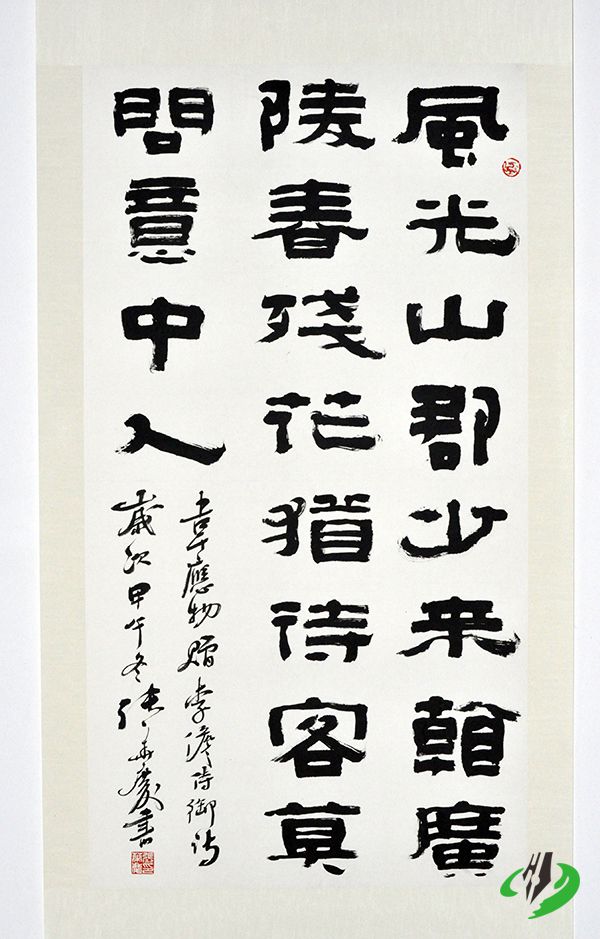 風光山郡少来看廣
陵春殘花猶待客莫
問意中人
書韋應物贈李儋侍御詩
歲次甲午冬張華慶書